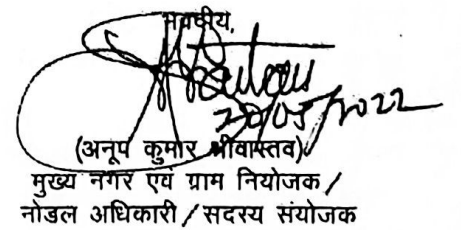 भवदीय,
20/05/2022
(अनूप कुमार श्रीवास्तव)
मुख्य नगर एवं ग्राम नियोजक /
नोडल अधिकारी / सदस्य संयोजक